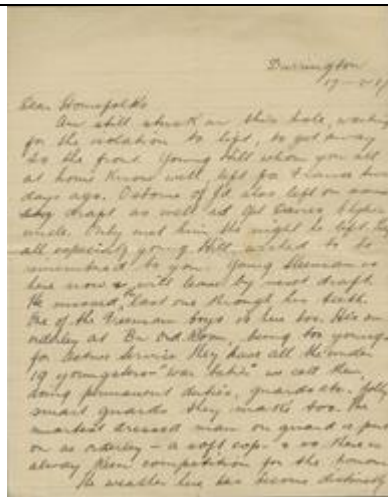 Durrington
Dear Homefolks
Am still stuck in this hole, waiting
for the isolation to lift, to get away
to the front. Young Hill whom you all
at home know well, left for France two
days ago. Osborne also left on same
draft as well as Cpl Davies
uncle. Only met him the night he left. They
all especially young Hill, wished to be
remembered to you. Young is
here now & will leave by next draft.
He missed last one through his teeth.
One of the Freeman boys is here too. He's an
orderly at Bn Ord. Room, being too young
for Active Service. They have all the under
19 youngsters "war babies" we call them,
doing permanent duties, guards etc. Jolly
smart guards they make too. The
smartest dressed man on guard is put
on as orderly - a soft cop - & so there is
always keen competition for the honour
The weather here has become distinctly